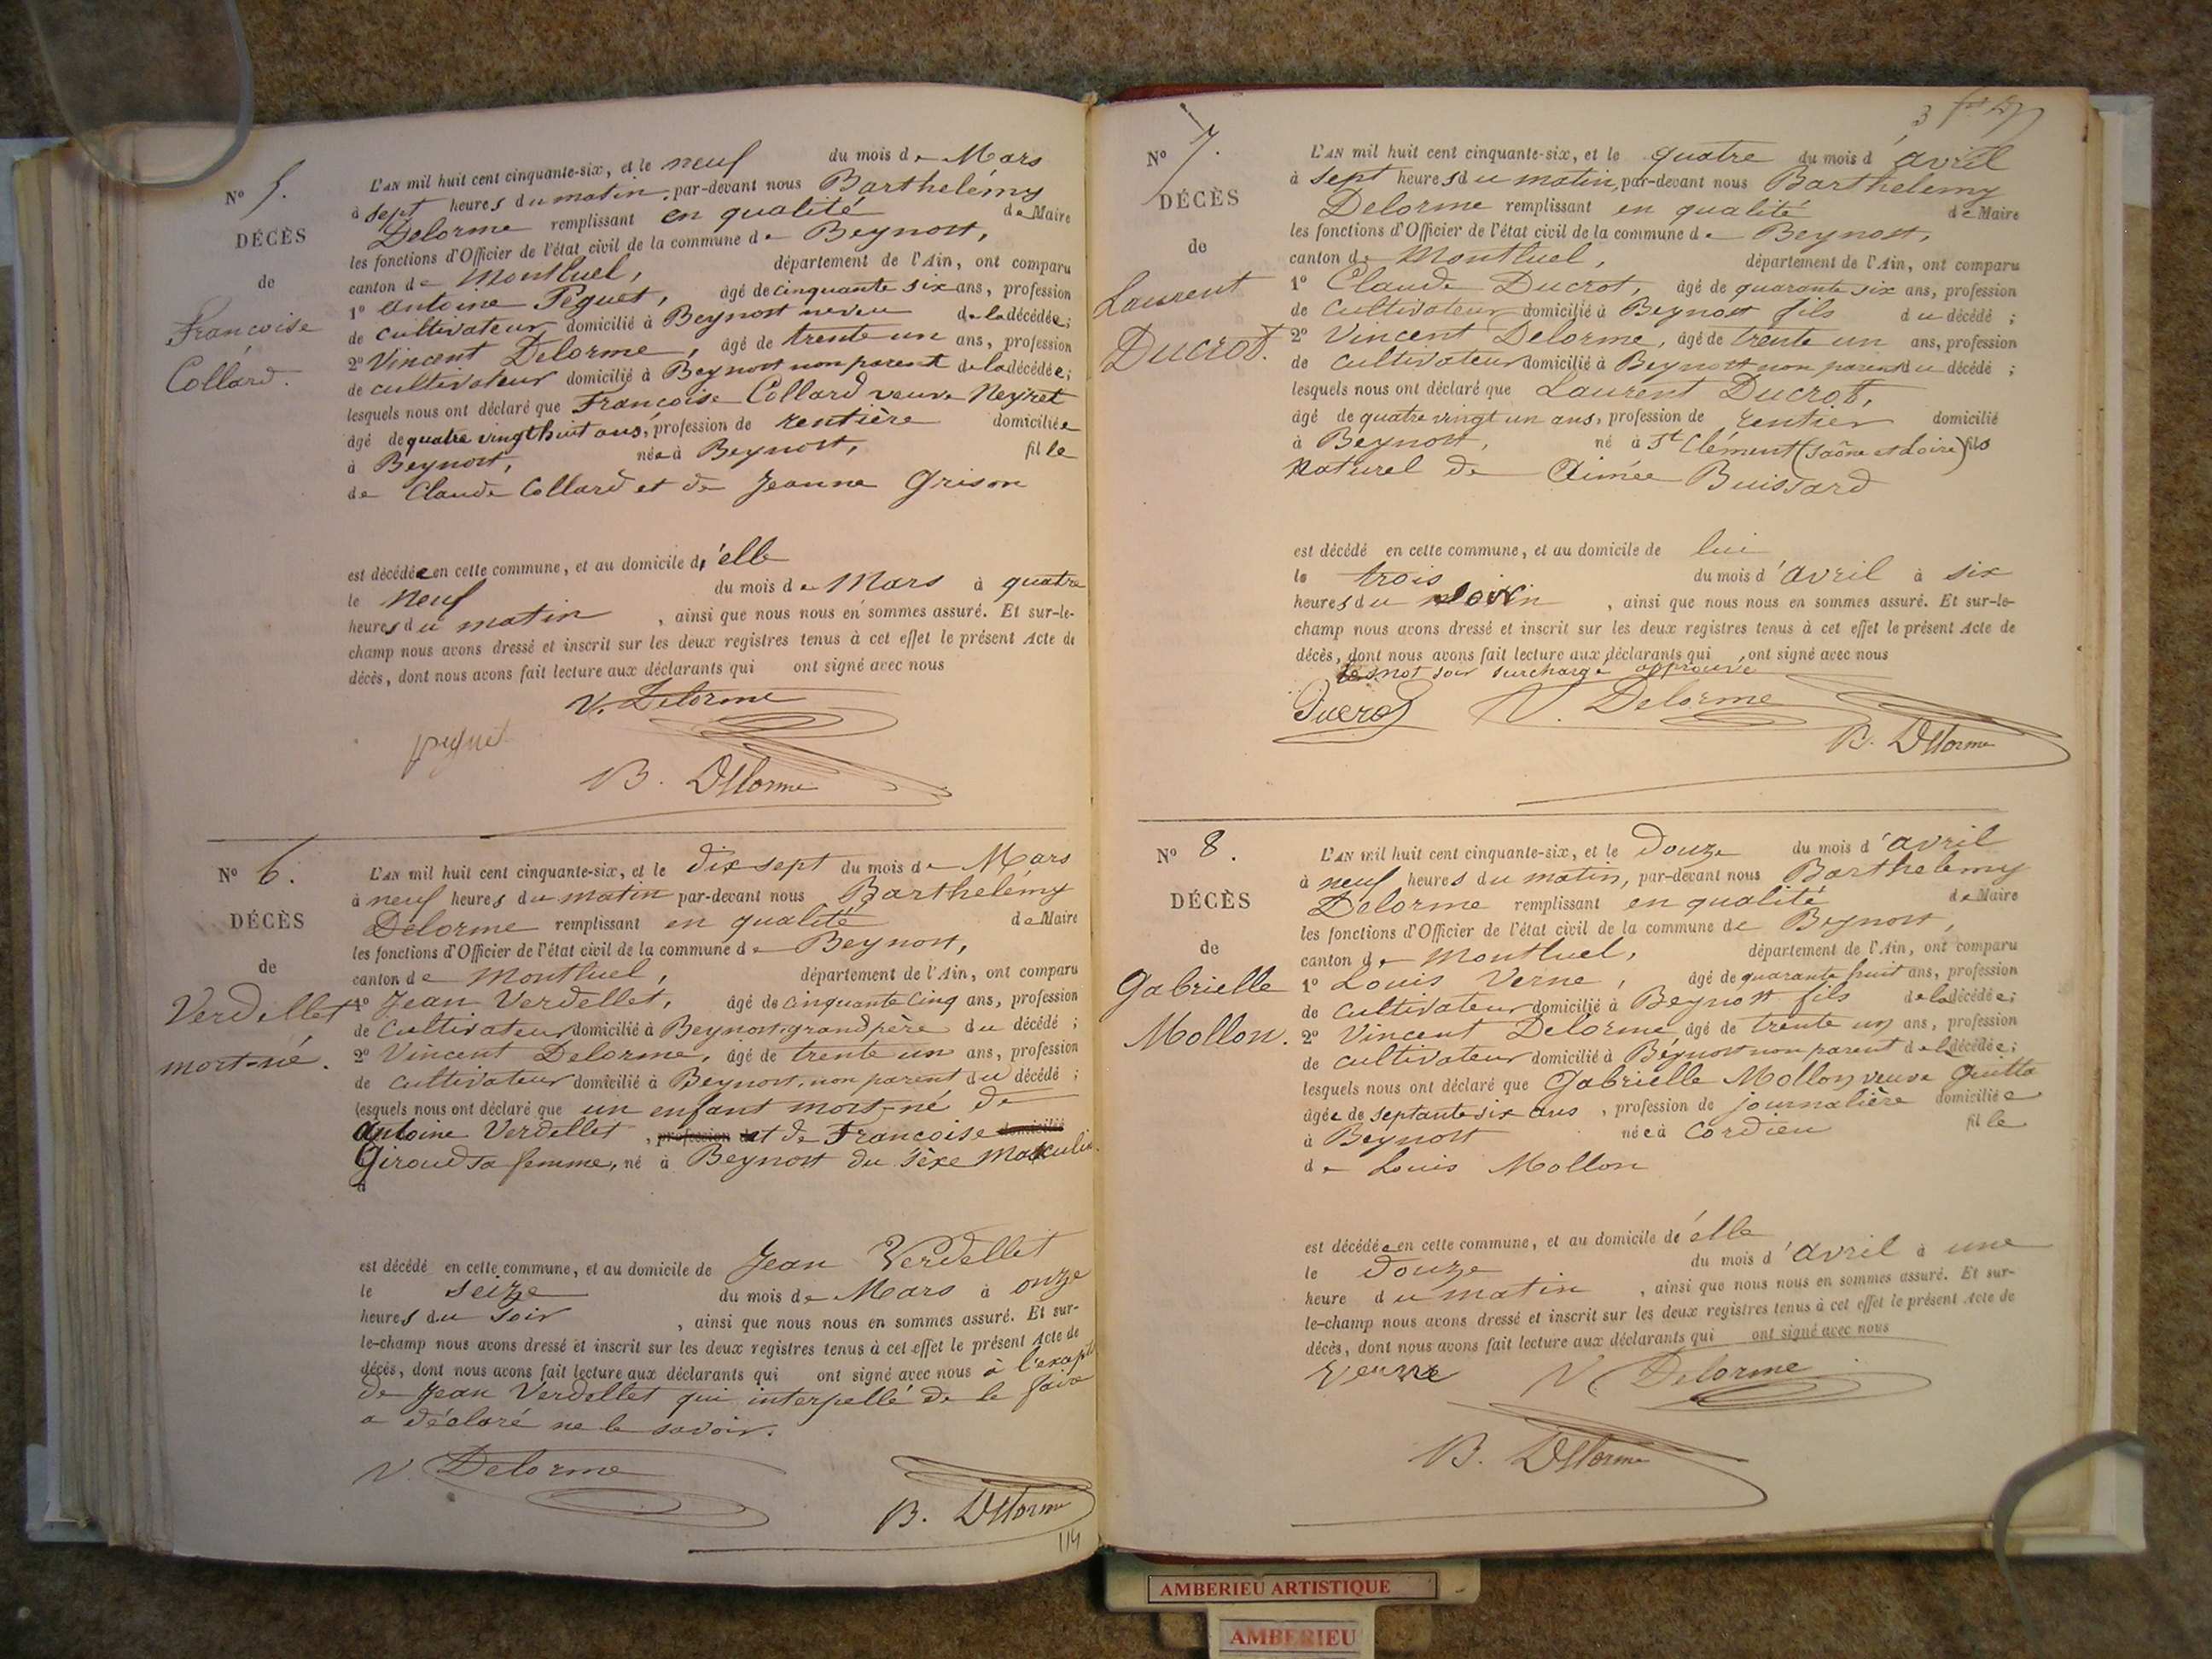 N° 5.
DÉCÈS
de
Françoise
Collard.
L'AN mil huit cent cinquante-six, et le neuf du mois de Mars
à sept heures du matin, par-devant nous Barthelémy
Delorme remplissant en qualité de Maire
les fonctions d'Officier de l'état civil de la commune de Beynost,
canton de Montluel, département de l'Ain, ont comparu
1° Antoine Péguet, âgé de cinquante six ans, profession
de cultivateur domicilié à Beynost neveu de la décédée;
2° Vincent Delorme, âgé de trente un ans, profession
de cultivateur domicilié à Beynost non parent de la décédée;
lesquels nous ont déclaré que Françoise Collard veuve Neyret
âgé de quatre vingt huit ans, profession de rentière domiciliée
à Beynost, née à Beynost, fille
de Claude Collard et de Jeanne Grison
est décédée en cette commune, et au domicile d'elle
le neuf du mois de Mars à quatre
heures du matin, ainsi que nous nous en sommes assuré. Et sur-le-
champ nous avons dressé et inscrit sur les deux registres tenus à cet effet le présent Acte de
décès, dont nous avons fait lecture aux déclarants qui ont signé avec nous
V. Delorme
peguet
B. Delorme
N° 6.
DÉCÈS
de
Verdellet
mort-né.
L'AN mil huit cent cinquante-six, et le dix sept du mois de Mars
à neuf heures du matin par-devant nous Barthelémy
Delorme remplissant en qualité de Maire
les fonctions d'Officier de l'état civil de la commune de Beynost,
canton de Montluel, département de l'Ain, ont comparu
1° Jean Verdellet, âgé de cinquante cinq ans, profession
de cultivateur domicilié à Beynost grand père du décédé;
2° Vincent Delorme, âgé de trente un ans, profession
de cultivateur domicilié à Beynost, non parent du décédé;
lesquels nous ont déclaré que un enfant mort-né de
Antoine Verdellet, profession et de Françoise domicilié
Giroud sa femme, né à Beynost du sèxe Masculin.
à
est décédé en cette commune, et au domicile de Jean Verdellet
le seize du mois de Mars à onze
heures du soir, ainsi que nous nous en sommes assuré. Et sur-
le-champ nous avons dressé et inscrit sur les deux registres tenus à cet effet le présent Acte de
décès, dont nous avons fait lecture aux déclarants qui ont signé avec nous à l'exept
de Jean Verdellet qui interpellé de le faire
a déclaré ne le savoir.
V. Delorme
B. Delorme
114
3
N° 7.
DÉCÈS
de
Laurent
Ducrot.
L'AN mil huit cent cinquante-six, et le quatre du mois d'avril
à sept heures du matin, par-devant nous Barthelemy
Delorme remplissant en qualité de Maire
les fonctions d'Officier de l'état civil de la commune de Beynost,
canton de Montluel, département de l'Ain, ont comparu
1° Claude Ducrot, âgé de quarante six ans, profession
de cultivateur domicilié à Beynost fils du décédé;
2° Vincent Delorme, âgé de trente un ans, profession
de cultivateur domicilié à Beynost non parent du décédé;
lesquels nous ont déclaré que Laurent Ducrot,
âgé de quatre vingt un ans, profession de rentier domicilié
à Beynost, né à St Clément (Saône et Loire) fils
naturel de Aimée Buissard
est décédé en cette commune, et au domicile de lui
le trois du mois d'avril à six
heures du soir, ainsi que nous nous en sommes assuré. Et sur-le-
champ nous avons dressé et inscrit sur les deux registres tenus à cet effet le présent Acte de
décès, dont nous avons fait lecture aux déclarants qui ont signé avec nous
le mot soir surchargé approuvé
Ducrot V. Delorme
B. Delorme
N° 8.
DÉCÈS
de
Gabrielle
Mollon.
L'AN mil huit cent cinquante-six, et le douze du mois d'avril
à neuf heures du matin, par-devant nous Barthelemy
Delorme remplissant en qualité de Maire
les fonctions d'Officier de l'état civil de la commune de Beynost,
canton de Montluel, département de l'Ain, ont comparu
1° Louis Verne, âgé de quarante huit ans, profession
de cultivateur domicilié à Beynost fils de la décédée;
2° Vincent Delorme, âgé de trente un ans, profession
de cultivateur domicilié à Beynost non parent de la décédée;
lesquels nous ont déclaré que Gabrielle Mollon veuve
âgée de septante six ans, profession de journalière domiciliée
à Beynost née à Cordieu fille
de Louis Mollon
est décédée en cette commune, et au domicile d'elle
le douze du mois d'avril à une
heure du matin, ainsi que nous nous en sommes assuré. Et sur-
le-champ nous avons dressé et inscrit sur les deux registres tenus à cet effet le présent Acte de
décès, dont nous avons fait lecture aux déclarants qui ont signé avec nous
V. Delorme
B. Delorme
AMBERIEU ARTISTIQUE
AMBERIEU